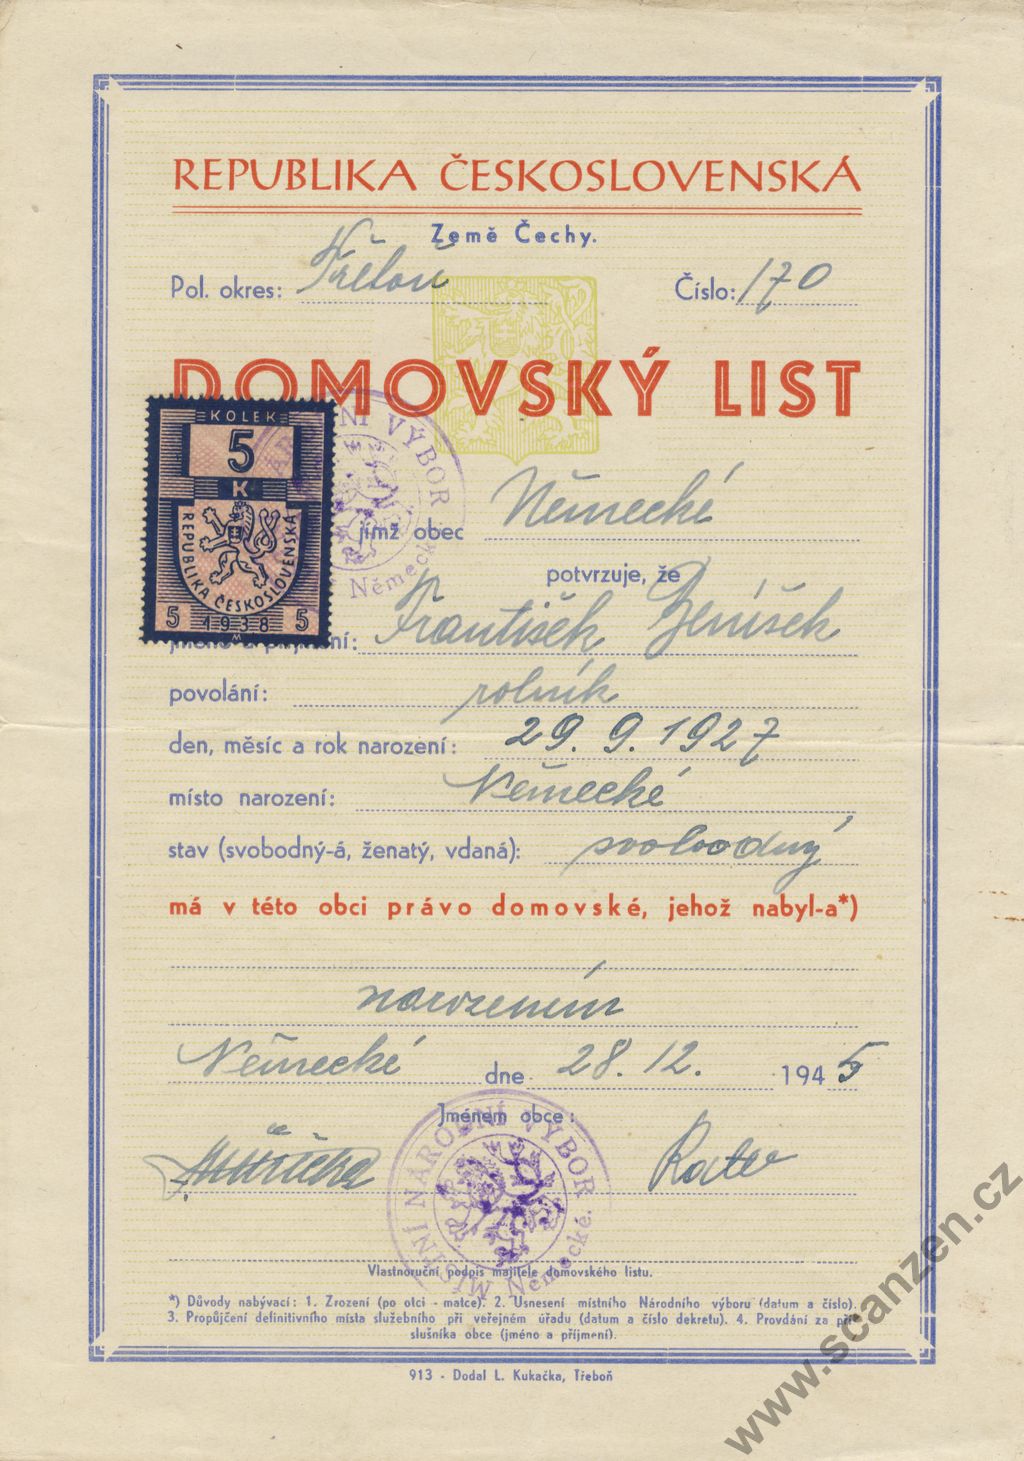 REPUBLIKA ČESKOSLOVENSKÁ
Země Čechy.
Pol. okres: Třeboň Číslo: 170
DOMOVSKÝ LIST
KOLEK
5
K
REPUBLIKA ČESKOSLOVENSKÁ
5 1938 5
NÍ VÝBOR
Německé
jímž obec Německé
potvrzuje, že
František Beníšek
povolání: rolník
den, měsíc a rok narození: 29. 9. 1927
místo narození: Německé
stav (svobodný-á, ženatý, vdaná): svobodný
má v této obci právo domovské, jehož nabyl-a*)
narozením
Německé dne 28. 12. 1945
Jménem obce:
MÍSTNÍ NÁRODNÍ VÝBOR
Německé.
Vlastnoruční podpis majitele domovského listu.
*) Důvody nabývací: 1. Zrození (po otci - matce). 2. Usnesení místního Národního výboru (datum a číslo).
3. Propůjčení definitivního místa služebního při veřejném úřadu (datum a číslo dekretu). 4. Provdání za pří-
slušníka obce (jméno a příjmení).
913 - Dodal L. Kukačka, Třeboň
www.scanzen.cz